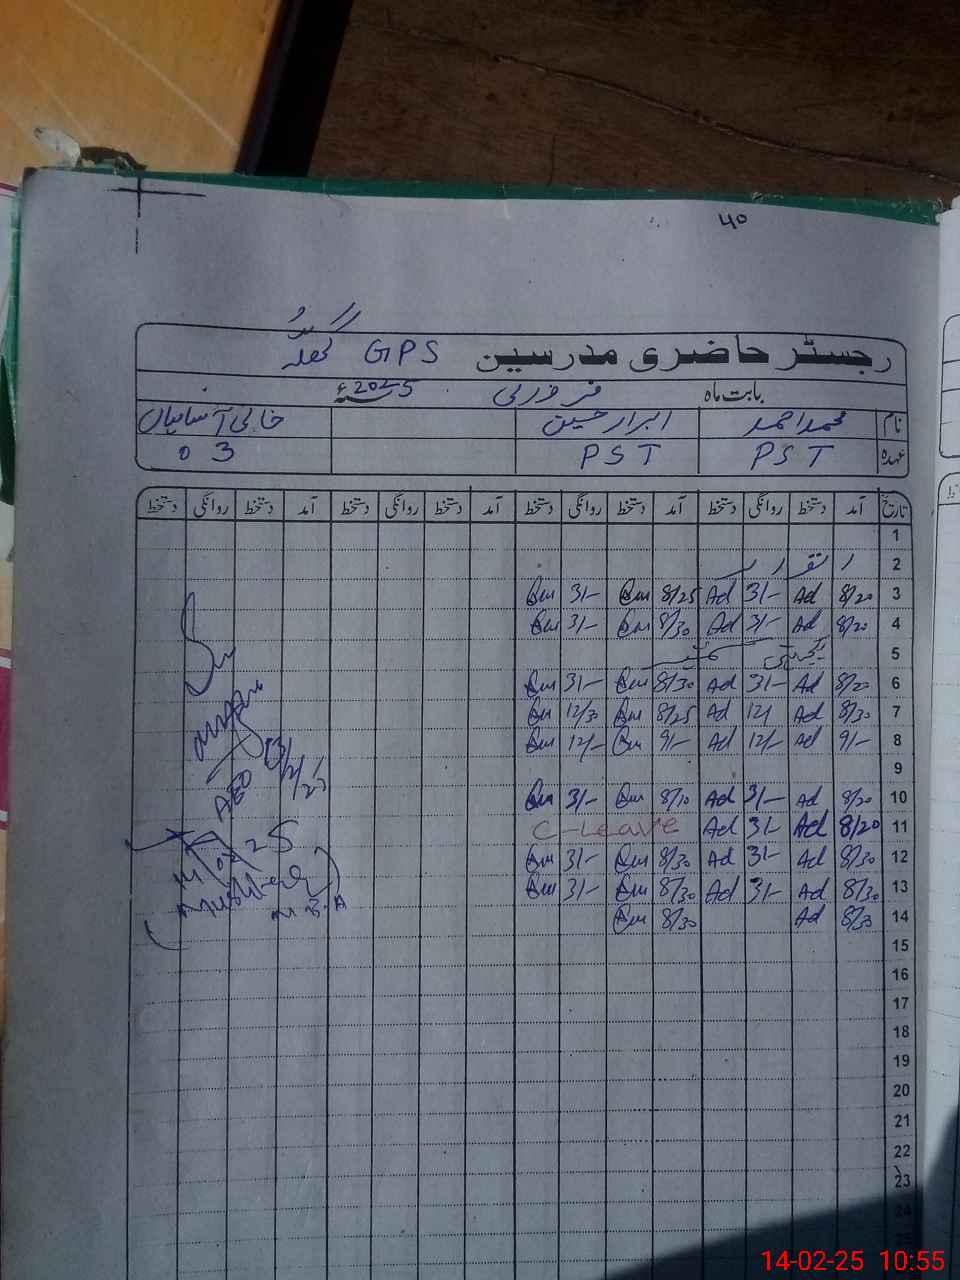 40
رجسٹر حاضری مدرسین GPS
بابت ماہ فروری 2025ء
نام محمد احمد ابرار حسین خالی آسامیاں
عہدہ PST PST 03
تاریخ آمد دستخط روانگی دستخط آمد دستخط روانگی دستخط آمد دستخط روانگی دستخط آمد دستخط روانگی دستخط
1
2 اتوار
3 8/20 Ad 3/- Ad 8/25 3/-
4 8/20 Ad 3/- Ad 8/30 3/-
5 یکجہتی کشمیر
6 8/20 Ad 3/- Ad 8/30 3/-
7 8/30 Ad 12/ Ad 8/25 12/30
8 9/- Ad 12/- Ad 9/- 12/-
9
10 8/20 Ad 3/- Ad 8/10 3/-
11 8/20 Ad 3/- Ad C-Leave
12 8/30 Ad 3/- Ad 8/30 3/-
13 8/30 Ad 3/- Ad 8/30 3/-
14 8/30 Ad 8/30
15
16
17
18
19
20
21
22
23
24
AEO
13/2/25
14/02/25
14-02-25 10:55